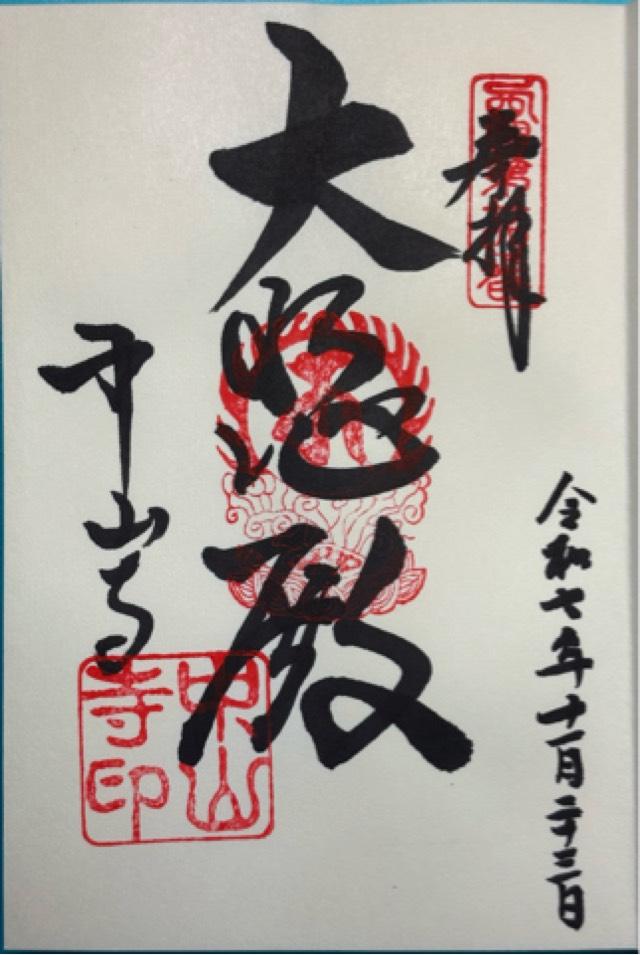 奉拝
令和七年十一月二十三日
大悲殿
中山寺
中山
寺印